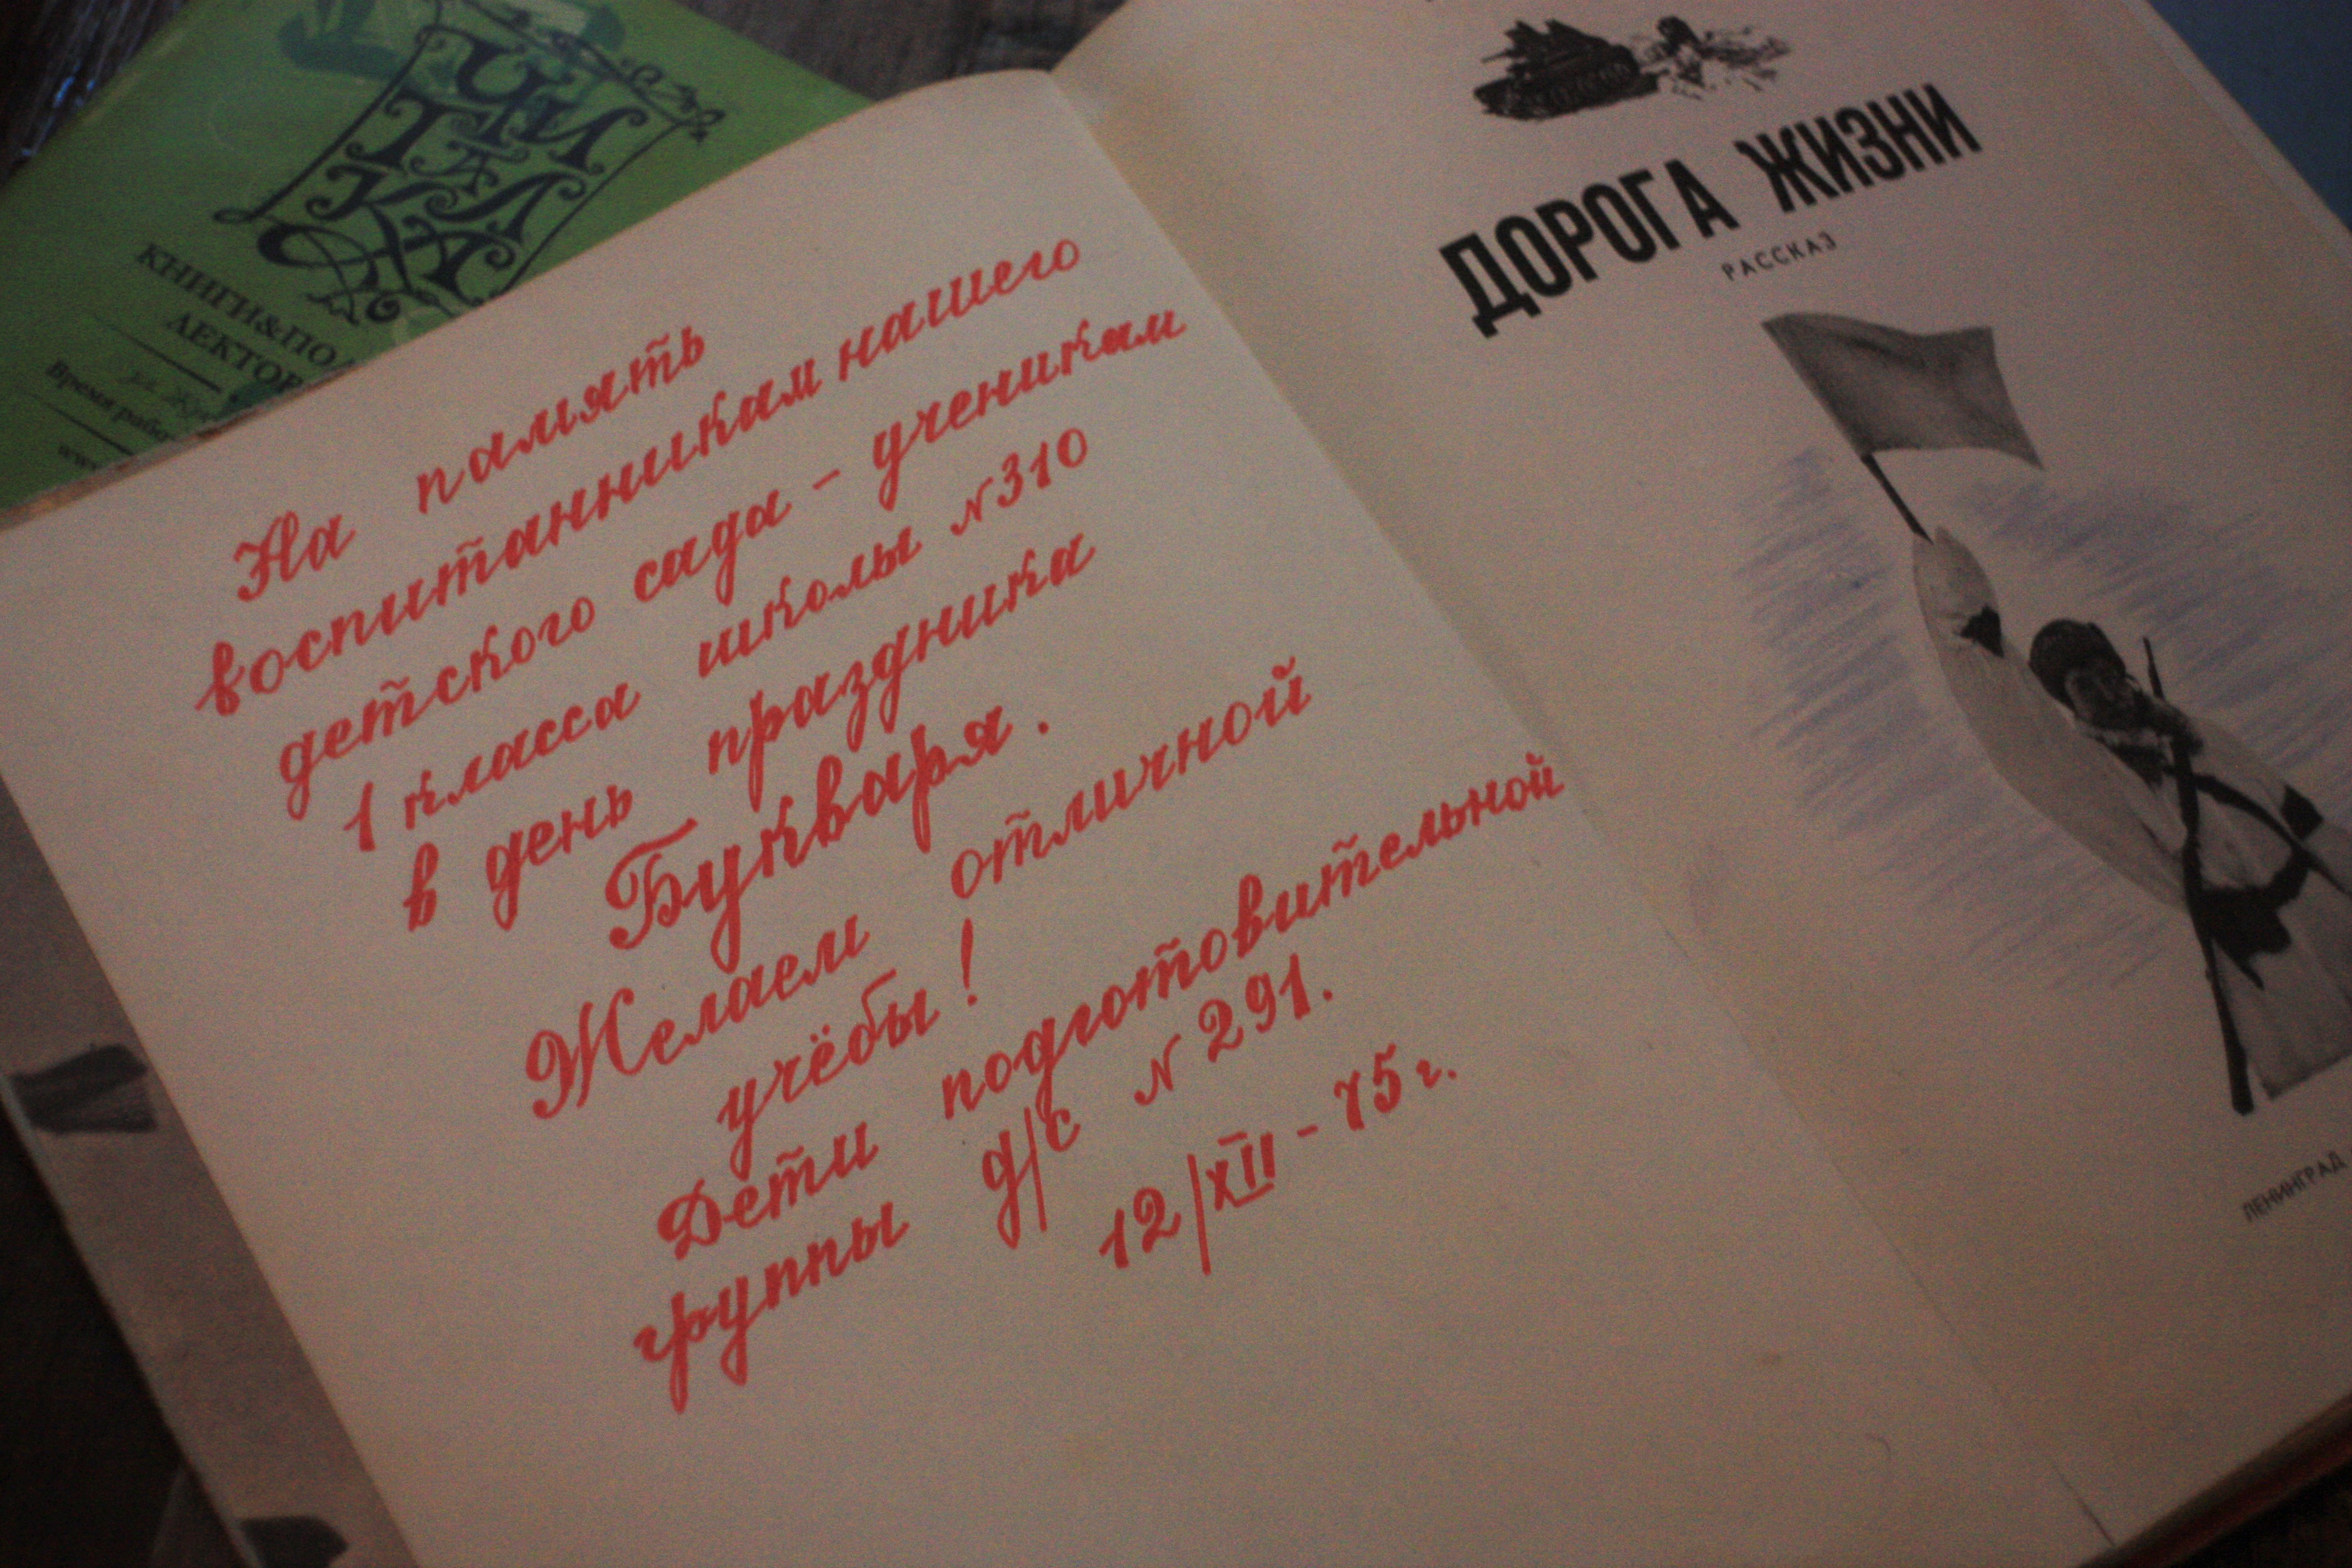 ЧИ
ТА
ЛКА
КНИГИ&ПО
ЛЕКТОР
Время рабо
www
На память
воспитанникам нашего
детского сада - ученикам
1 класса школы №310
в день праздника
Букваря.
Желаем отличной
учёбы!
Дети подготовительной
группы д/с № 291.
12/XII - 75 г.
ДОРОГА ЖИЗНИ
РАССКАЗ
ЛЕНИНГРАД